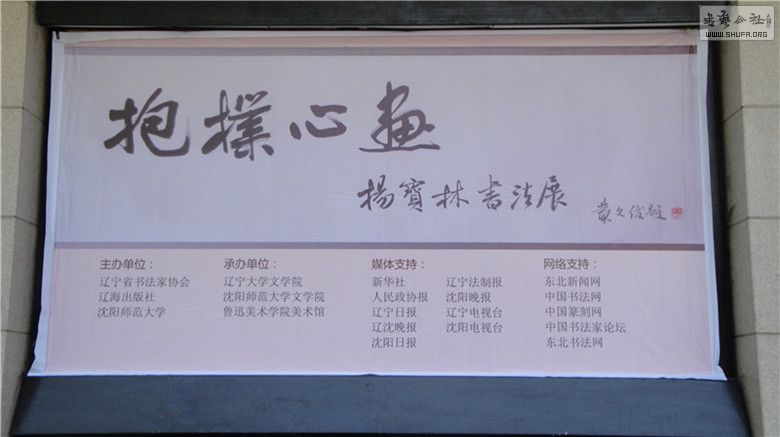 书法公社
WWW.SHUFA.ORG
抱撲心画
楊寶林书法展
主办单位：
辽宁省书法家协会
辽海出版社
沈阳师范大学
承办单位：
辽宁大学文学院
沈阳师范大学文学院
鲁迅美术学院美术馆
媒体支持：
新华社
人民政协报
辽宁日报
辽沈晚报
沈阳日报
辽宁法制报
沈阳晚报
辽宁电视台
沈阳电视台
网络支持：
东北新闻网
中国书法网
中国篆刻网
中国书法家论坛
东北书法网